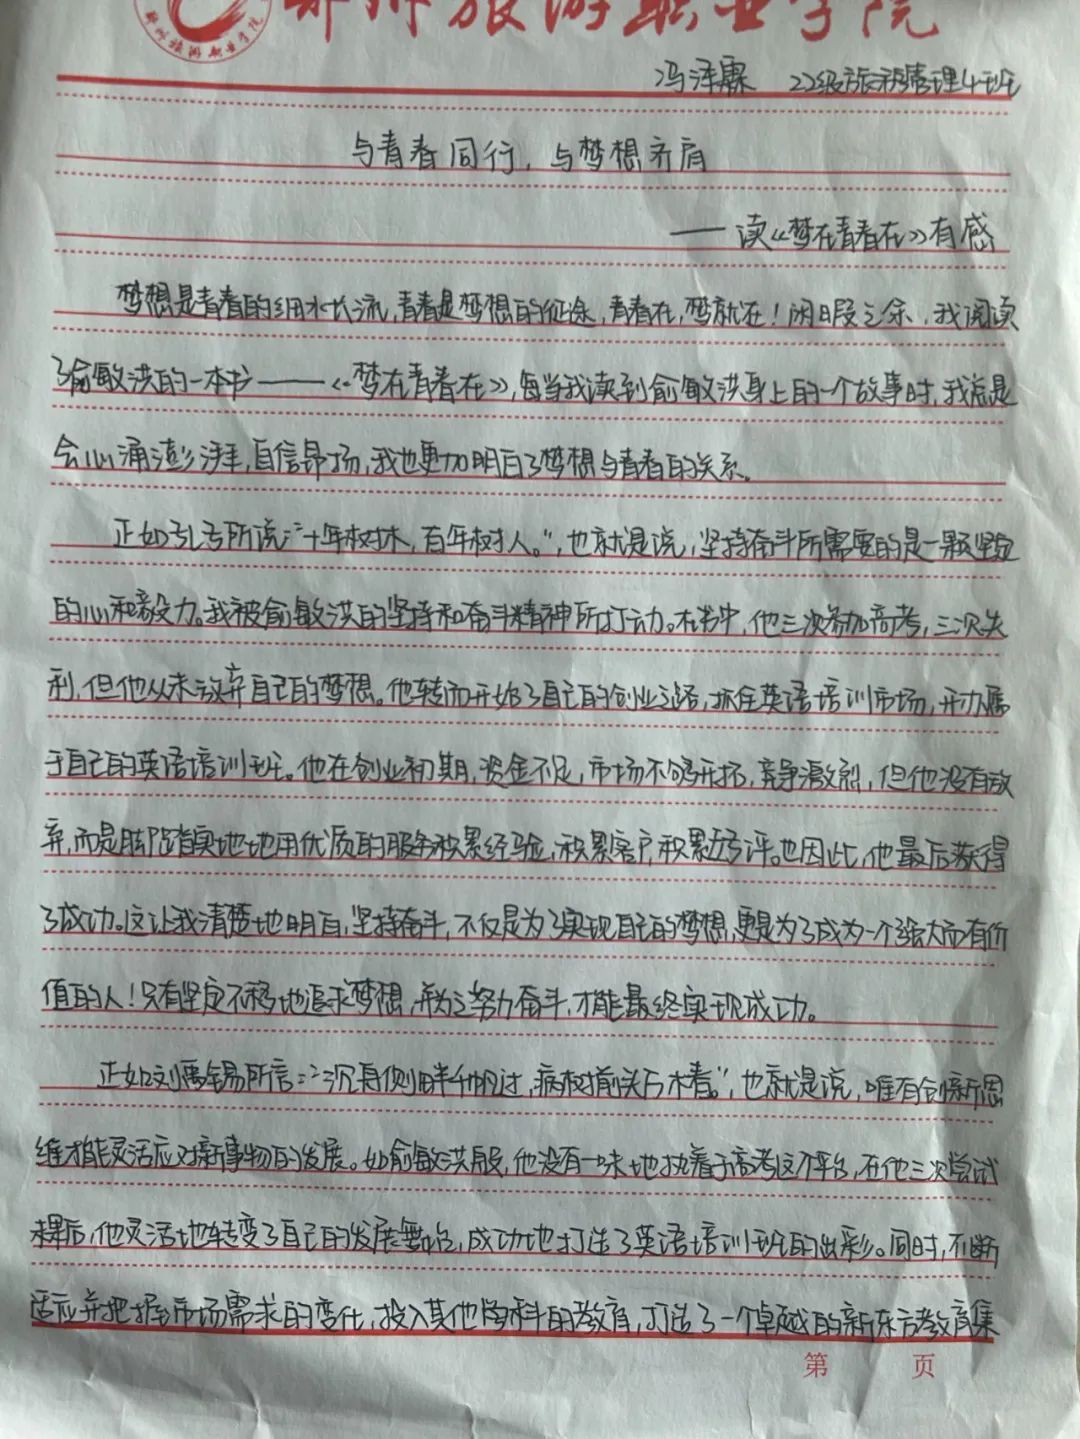 郑州旅游职业学院
郑州旅游职业学院
冯泽霖 22级旅行管理4班
与青春同行，与梦想齐肩
——读《梦在青春在》有感
梦想是青春的细水长流，青春是梦想的征途，青春在，梦就在！闲暇之余，我阅读
了俞敏洪的一本书——《梦在青春在》，每当我读到俞敏洪身上的一个故事时，我总是
会心涌澎湃，自信昂扬，我也更加明白了梦想与青春的关系。
正如孔子所说："十年树木，百年树人。"，也就是说，坚持奋斗所需要的是一颗坚定
的心和毅力。我被俞敏洪的坚持和奋斗精神所打动。在书中，他三次参加高考，三次失
利，但他从未放弃自己的梦想。他转而开始了自己的创业之路，抓住英语培训市场，开办属
于自己的英语培训班。他在创业初期，资金不足，市场不够开拓，竞争激烈，但他没有放
弃，而是脚踏实地地用优质的服务积累经验，积累客户，积累好评。也因此，他最后获得
了成功。这让我清楚地明白，坚持奋斗，不仅是为了实现自己的梦想，更是为了成为一个强大而有价
值的人！只有坚定不移地追求梦想，并为之努力奋斗，才能最终实现成功。
正如刘禹锡所言："沉舟侧畔千帆过，病树前头万木春。"，也就是说，唯有创新思
维才能灵活应对新事物的发展。如俞敏洪般，他没有一味地执着于高考这个平台，在他三次尝试
未果后，他灵活地转变了自己的发展舞台，成功地打造了英语培训班的出彩。同时，不断
适应并把握市场需求的变化，投入其他学科的教育，打造了一个卓越的新东方教育集
第 页